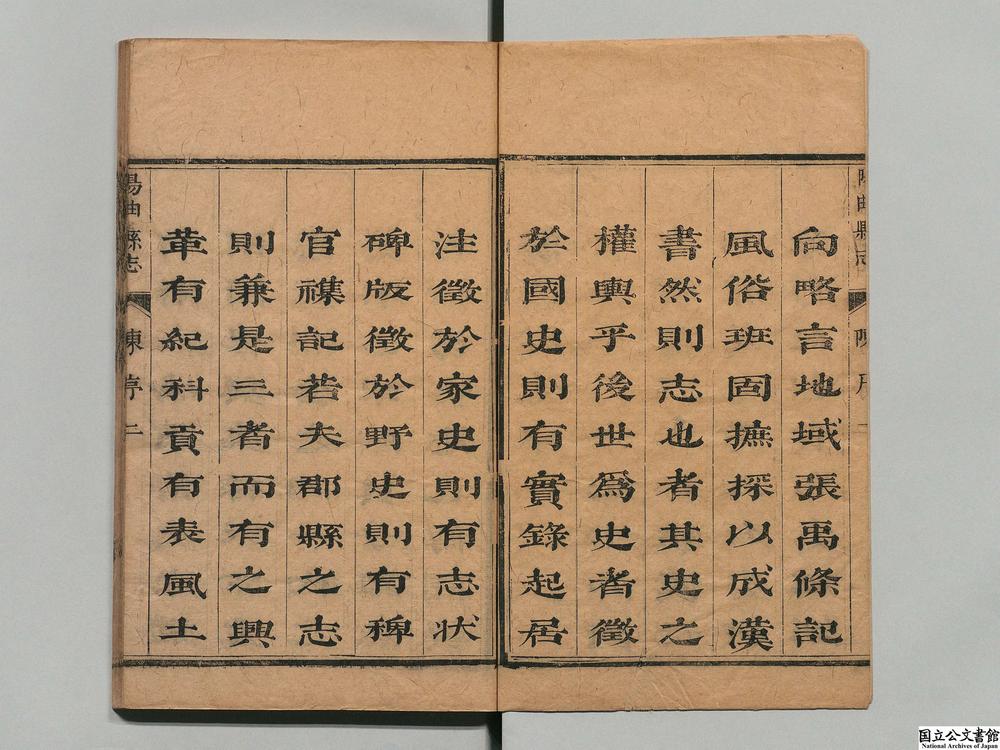 向略言地域張禹條記
風俗班固攟採以成漢
書然則志也者其史之
權輿乎後世爲史者徵
於國史則有實錄起居
注徵於家史則有志狀
碑版徵於野史則有稗
官襍記若夫郡縣之志
則兼是三者而有之興
革有紀科貢有表風土
陽曲縣志
陳序
二
国立公文書館
National Archives of Japan